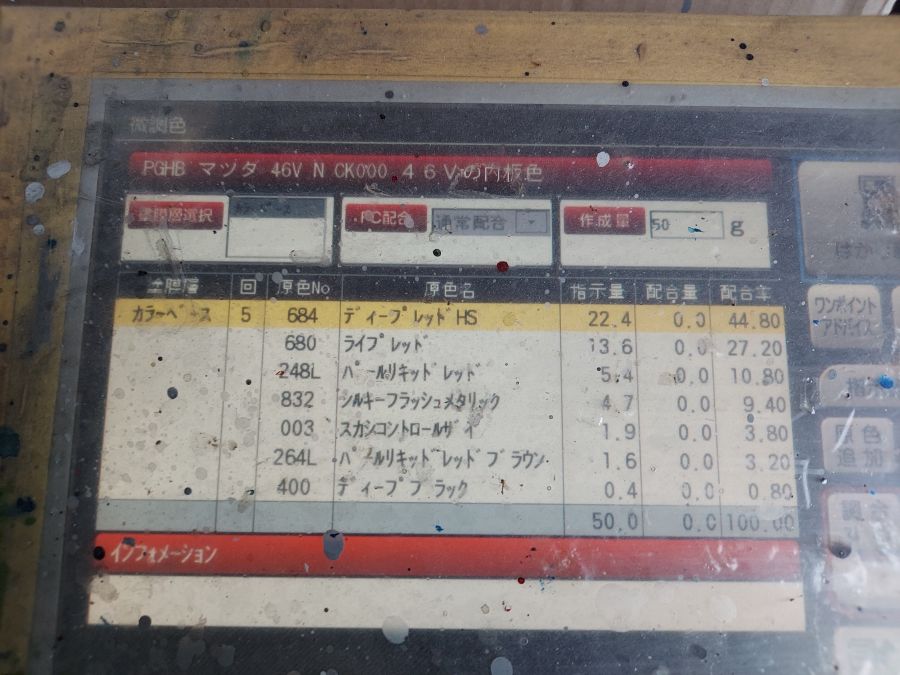 微調色
PGHB マツダ 46V N CK000 46Vの内板色
塗膜層選択
PC配合 通常配合
作成量 50 g
塗膜層 回 原色No 原色名 指示量 配合量 配合率
カラーベース 5 684 ディープレッドHS 22.4 0.0 44.80
680 ライブレッド 13.6 0.0 27.20
248L パールリキッドレッド 5.4 0.0 10.80
832 シルキーフラッシュメタリック 4.7 0.0 9.40
003 スカシコントロールザイ 1.9 0.0 3.80
264L パールリキッドレッドブラウン 1.6 0.0 3.20
400 ディープブラック 0.4 0.0 0.80
50.0 0.0 100.00
インフォメーション
ワンポイント
アドバイス
原色
追加
調合